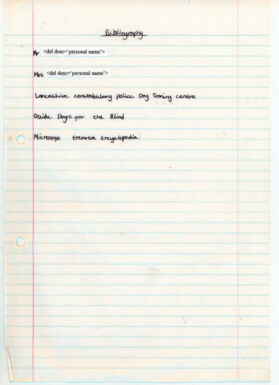 Bibliography
Mr <del desc="personal name">
Mrs <del desc="personal name">
Lancashire constabulary police Dog Traning centre
Guide Dogs for the Blind
Microsoft encarta encyclopedia